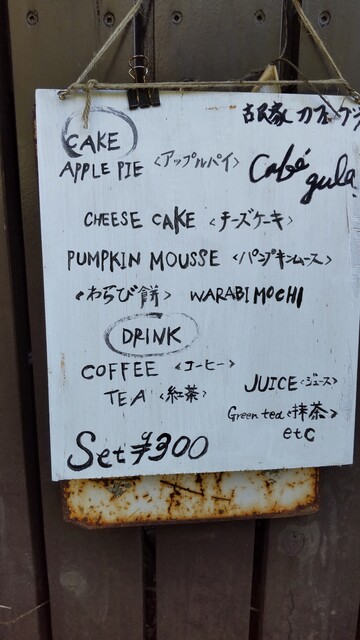 古民家 カフェ・グラ
Café gula
CAKE
APPLE PIE <アップルパイ>
CHEESE CAKE <チーズケーキ>
PUMPKIN MOUSSE <パンプキンムース>
<わらび餅> WARABIMOCHI
DRINK
COFFEE <コーヒー>
JUICE <ジュース>
TEA <紅茶>
Green tea <抹茶>
etc
Set ¥300